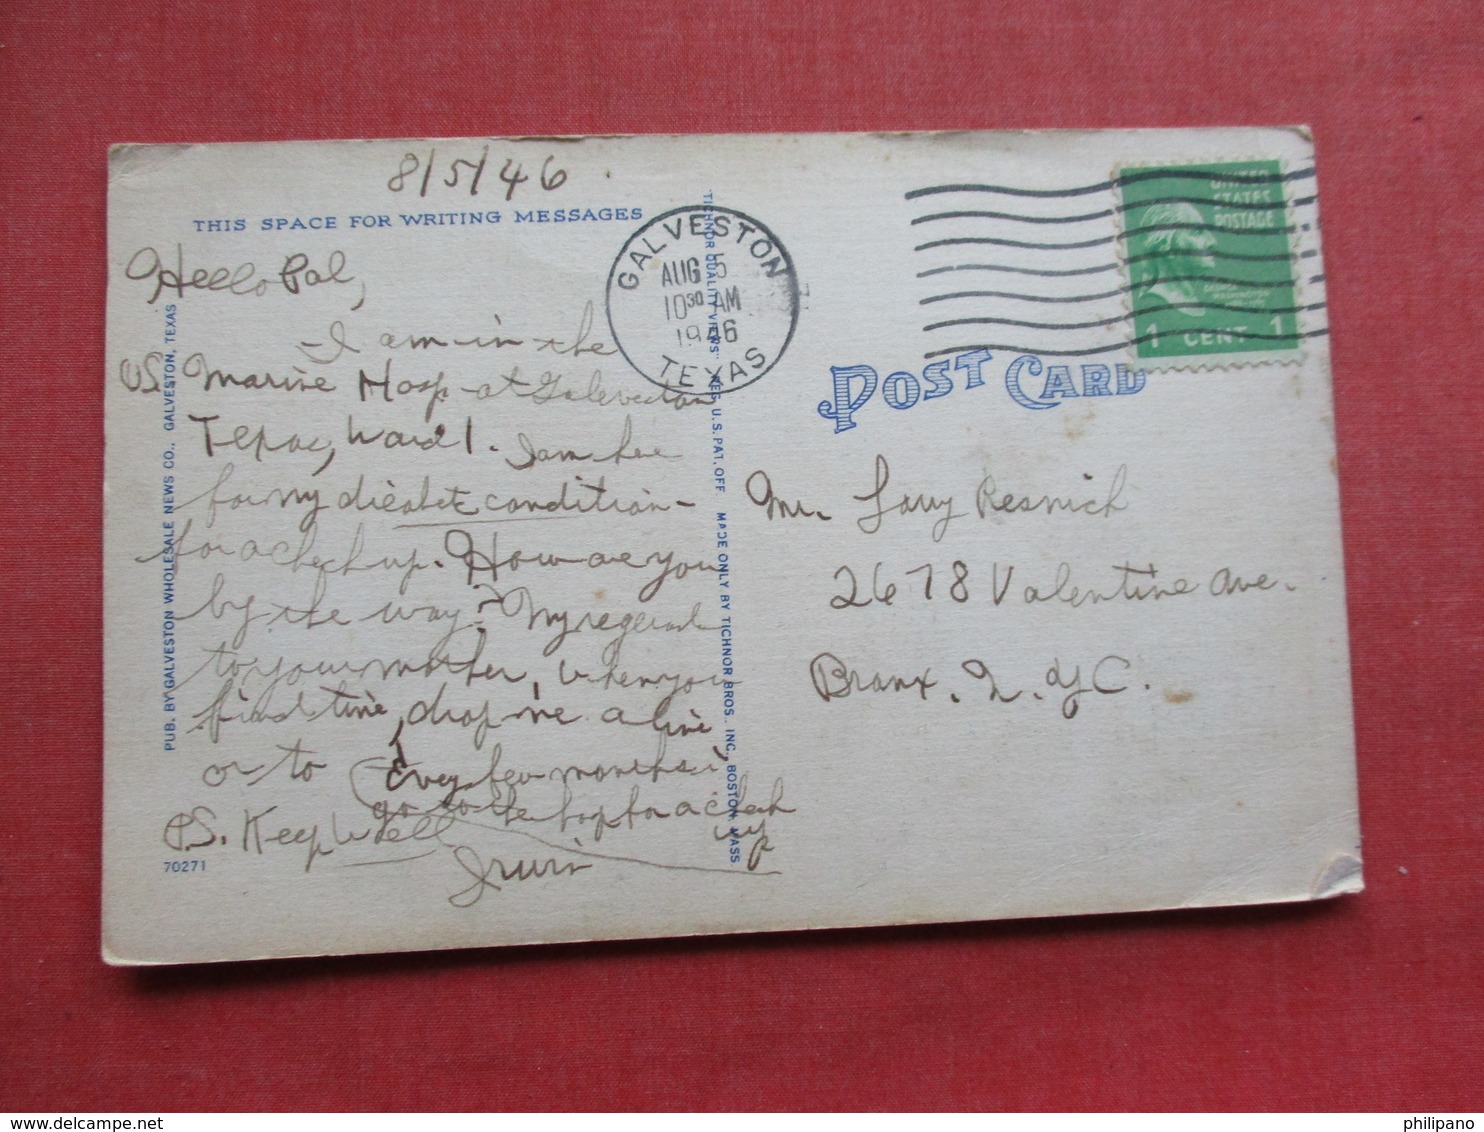 8/5/46
THIS SPACE FOR WRITING MESSAGES
Hello Pal,
I am in the
US. Marine Hosp at Galveston
Texas, Ward 1. I am here
for my diabetic condition -
for a check up. How are you
by the way? My regards
to your mother, when you
find time, drop me a line
or to
Every few months i
go to the hosp for a check
up
P.S. Keep Well
Irwin
70271
PUB. BY GALVESTON WHOLESALE NEWS CO., GALVESTON, TEXAS
"TICHNOR QUALITY VIEWS" REG. U.S. PAT. OFF. MADE ONLY BY TICHNOR BROS. INC., BOSTON, MASS.
GALVESTON
AUG 5
10 30 AM
1946
TEXAS
UNITED
STATES
POSTAGE
1 CENT 1
POST CARD
Mr. Larry Resnick
2678 Valentine Ave.
Bronx. N.Y.C.
http://www.delcampe.net
philipano